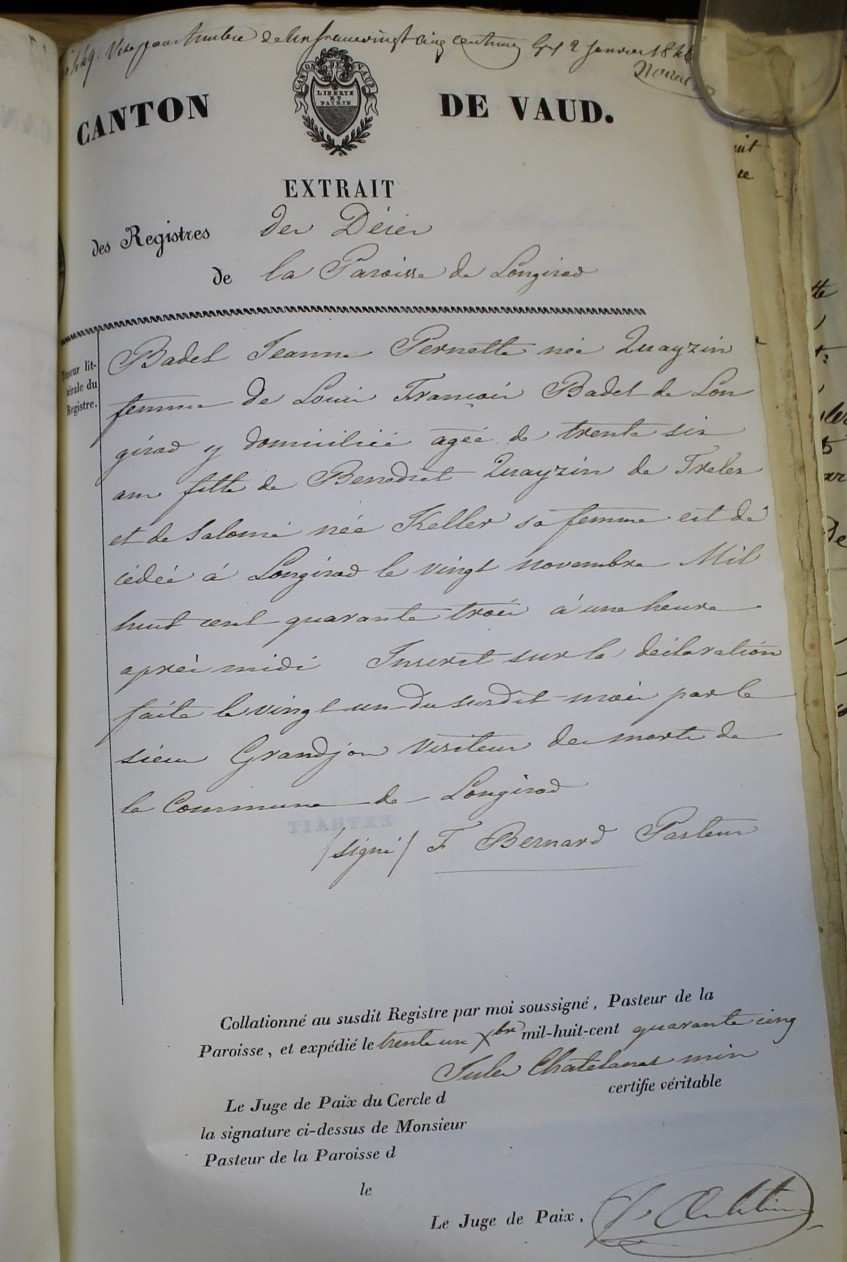 449. Visa pour timbre de un franc vingt cinq centimes 2 Janvier 1846
CANTON DE VAUD.
LIBERTÉ
ET
PATRIE
EXTRAIT
des Registres des Décès
de la Paroisse de Longirod
Teneur lit-
térale du
Registre.
Badel Jeanne Pernette née Quayzin
femme de Louis François Badel de Lon
girod y domiciliée agée de trente six
ans fille de Benedict Quayzin de Trelex
et de Salomé née Keller sa femme est dé
cédée à Longirod le vingt novembre Mil
huit cent quarante trois à une heure
après midi Inscrit sur la déclaration
faite le vingt un du susdit mois par le
sieur Grandjon Visiteur des morts de
la Commune de Longirod
/signé/ F Bernard Pasteur
Collationné au susdit Registre par moi soussigné, Pasteur de la
Paroisse, et expédié le trente un Xbre mil-huit-cent quarante cinq
Jules Chatelanat min
certifie véritable
Le Juge de Paix du Cercle d
la signature ci-dessus de Monsieur
Pasteur de la Paroisse d
le
Le Juge de Paix,